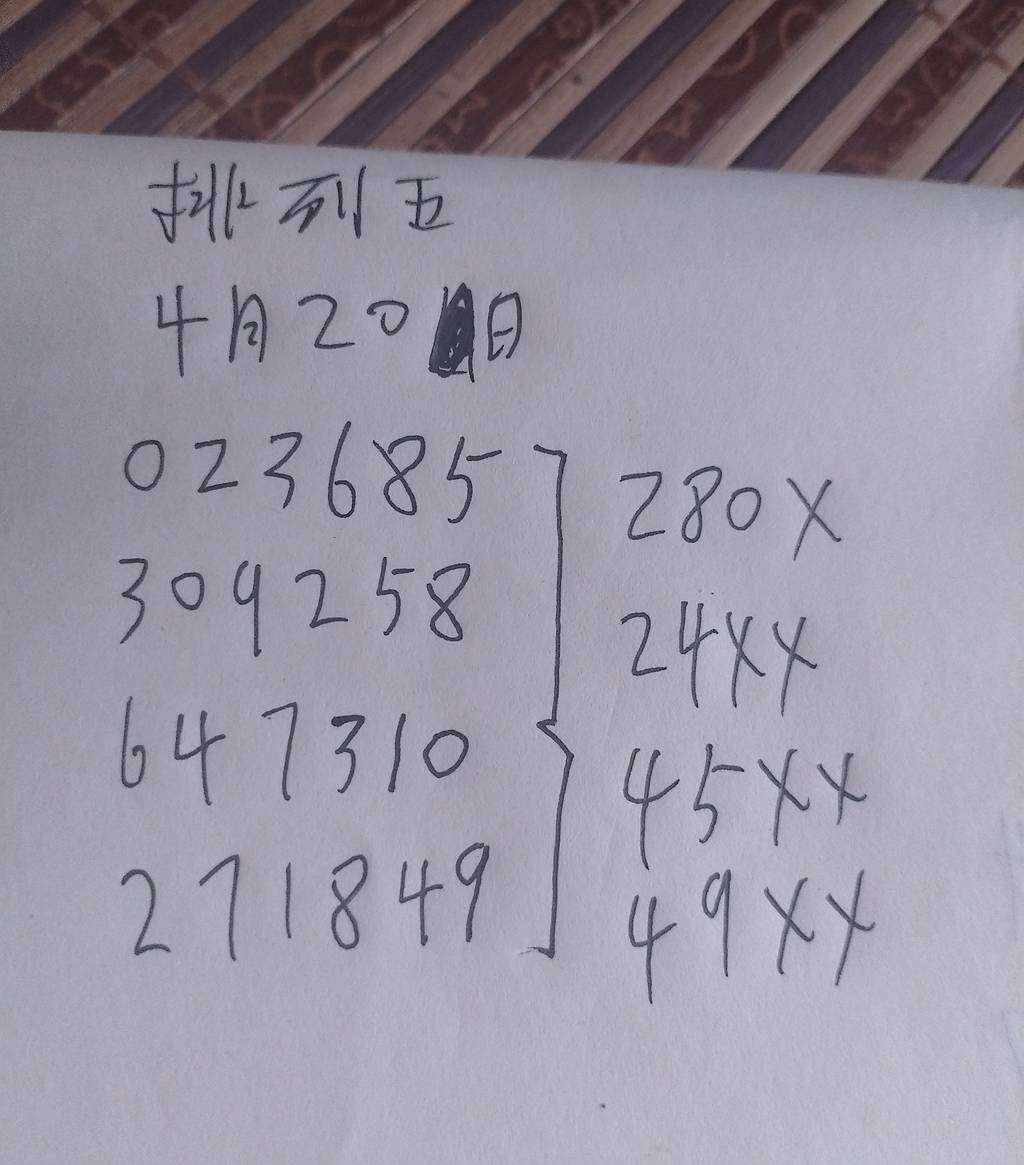 排列五
4月20日
023685
309258
647310
271849
280X
24XX
45XX
49XX